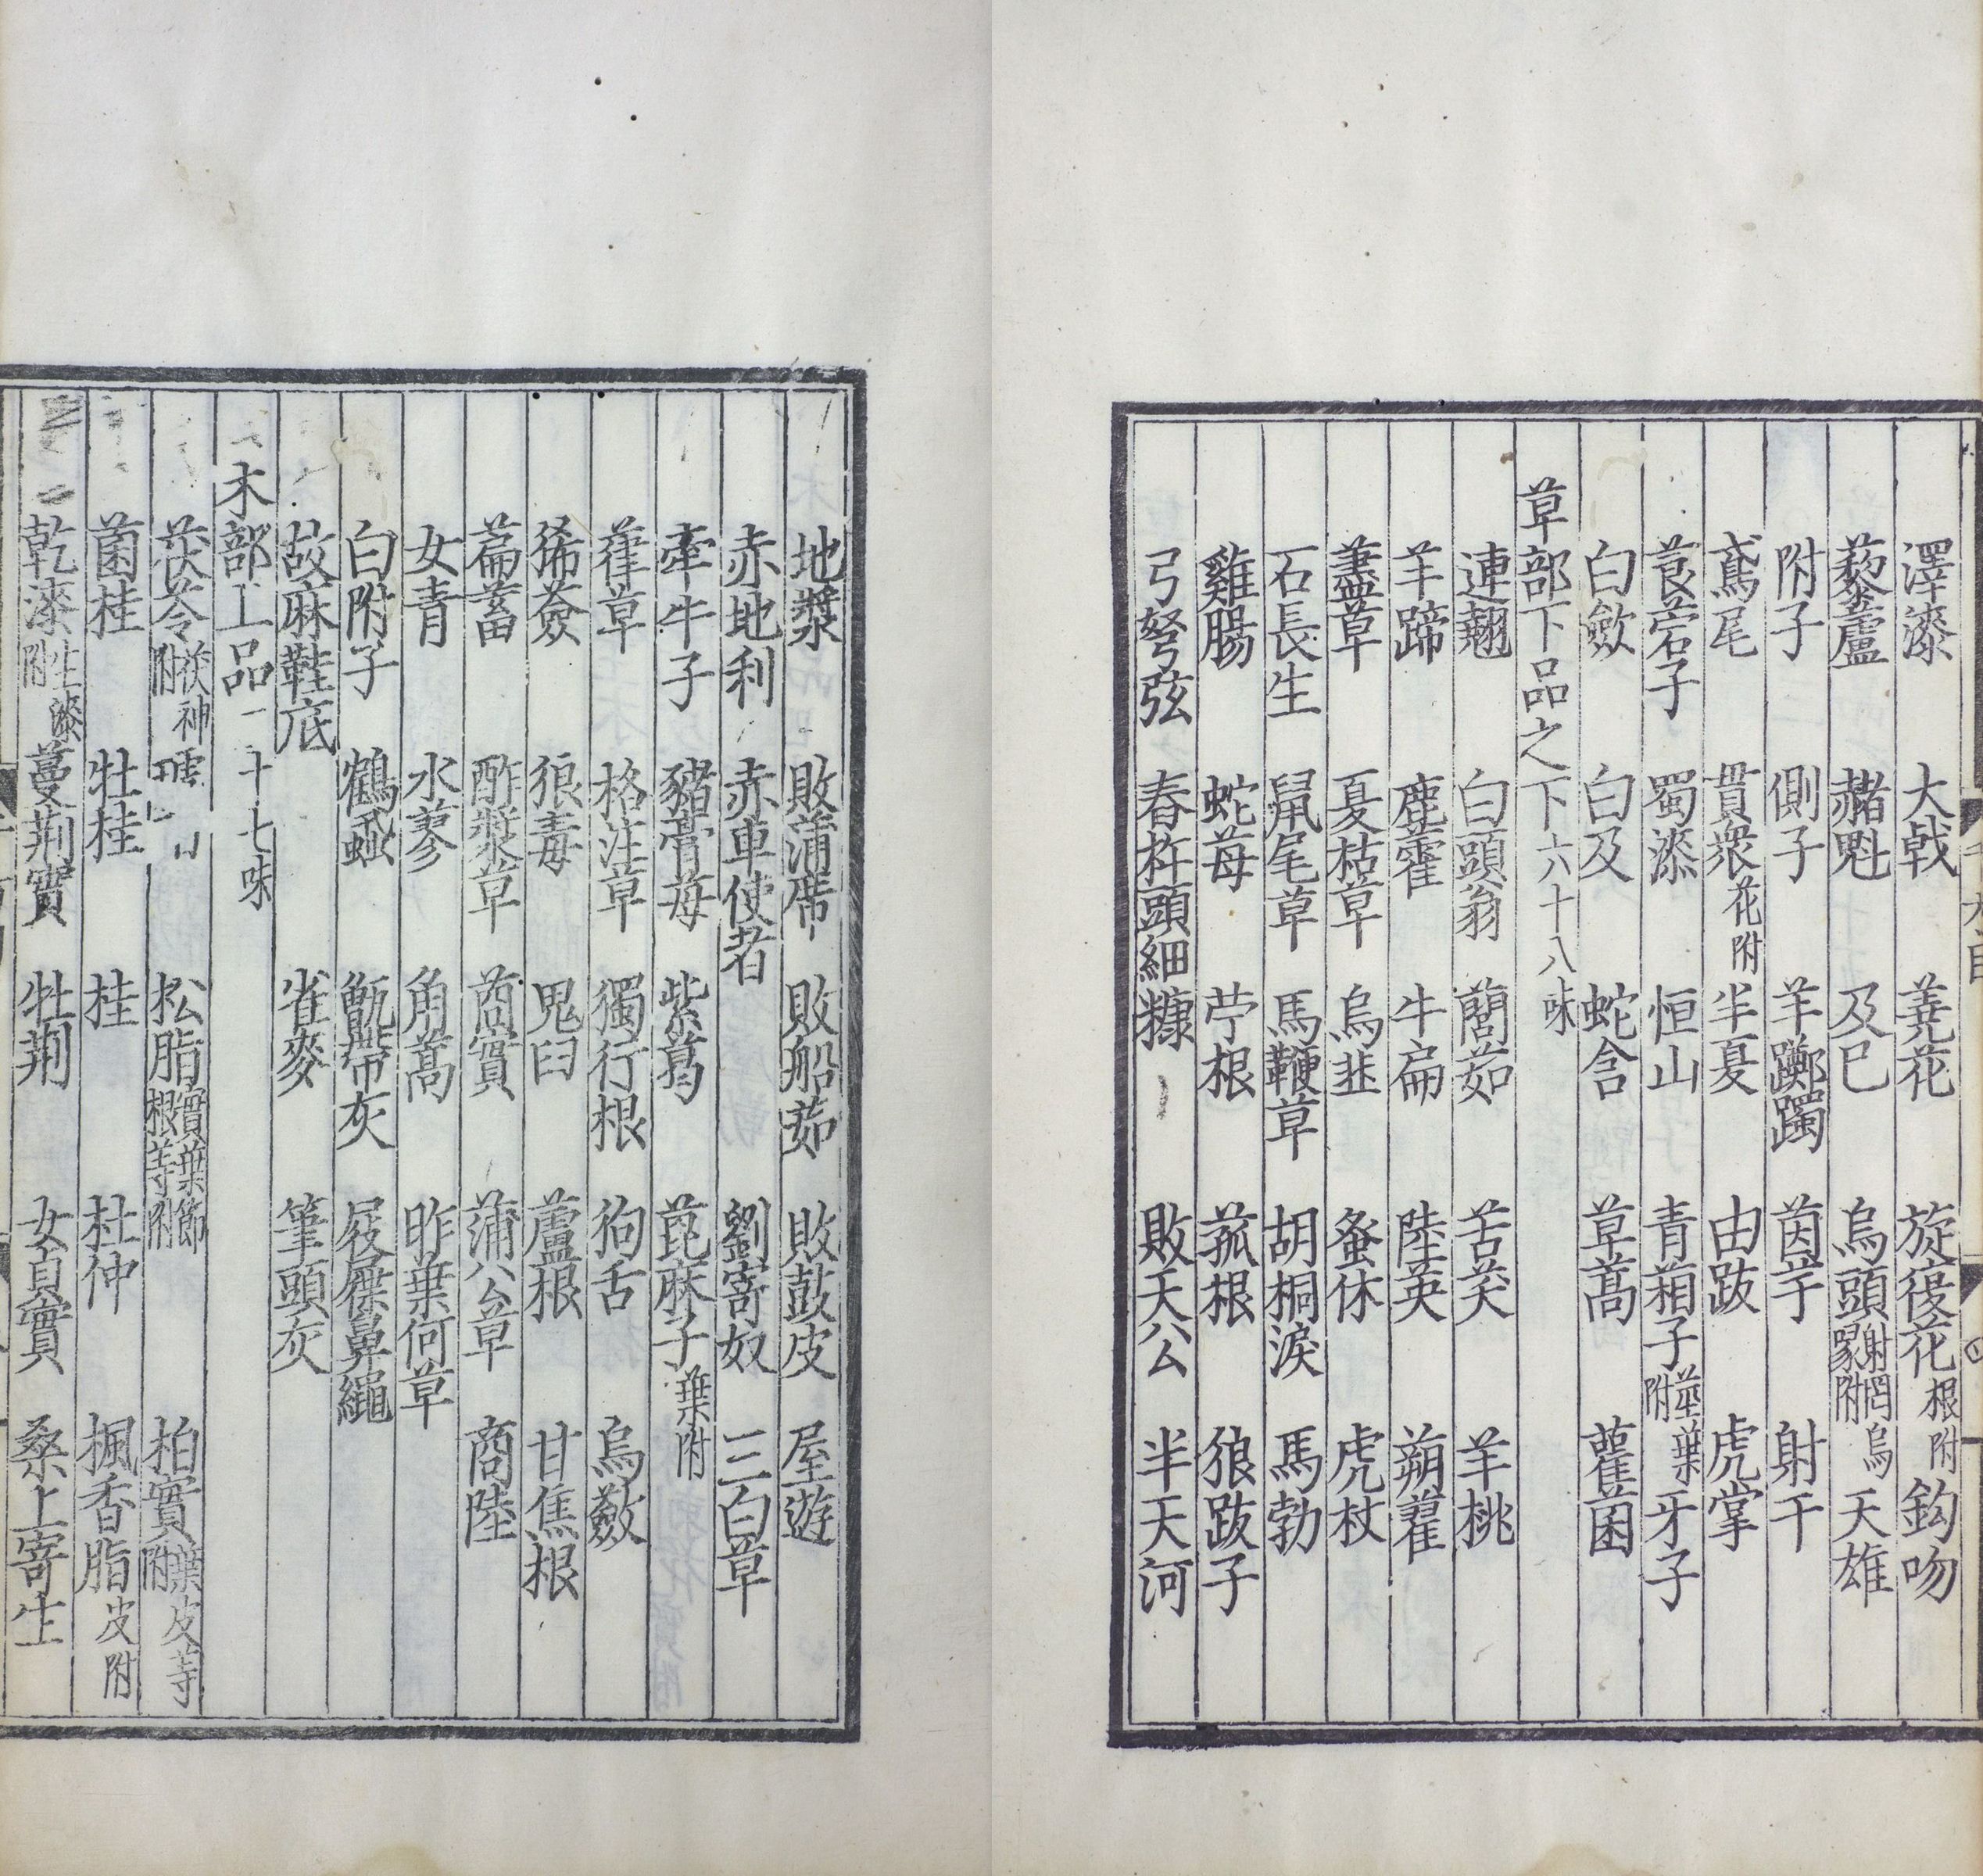 澤漆 大戟 蕘花 旋復花根附 鈎吻
藜蘆 赭魁 及巳 烏頭射罔烏喙附 天雄
附子 側子 羊躑躅 茵芋 射干
鳶尾 貫衆花附 半夏 由跋 虎掌
莨菪子 蜀漆 恒山 青葙子莖葉附 牙子
白斂 白及 蛇含 草蒿 雚菌
草部下品之下六十八味
連翹 白頭翁 䕡茹 苦芺 羊桃
羊蹄 鹿藿 牛扁 陸英 蒴藋
藎草 夏枯草 烏韭 蚤休 虎杖
石長生 鼠尾草 馬鞭草 胡桐淚 馬勃
雞腸 蛇苺 苧根 菰根 狼跋子
弓弩弦 舂杵頭細糠 敗天公 半天河
地漿 敗蒲席 敗船茹 敗鼓皮 屋遊
赤地利 赤車使者 劉寄奴 三白草
牽牛子 豬膏苺 紫葛 萞麻子葉附
葎草 格注草 獨行根 狗舌 烏蘞
豨薟 狼毒 鬼臼 蘆根 甘焦根
萹蓄 酢漿草 苘實 蒲公草 商陸
女青 水蓼 角蒿 昨葉何草
白附子 鶴蝨 甑帶灰 屐屧鼻繩
故麻鞋底 雀麥 筆頭灰
木部上品二十七味
茯苓茯神附 松脂實葉節根等附 柏實葉皮等附
菌桂 牡桂 桂 杜仲 楓香脂皮附
乾漆生漆附 蔓荆實 牡荆 女貞實 桑上寄生